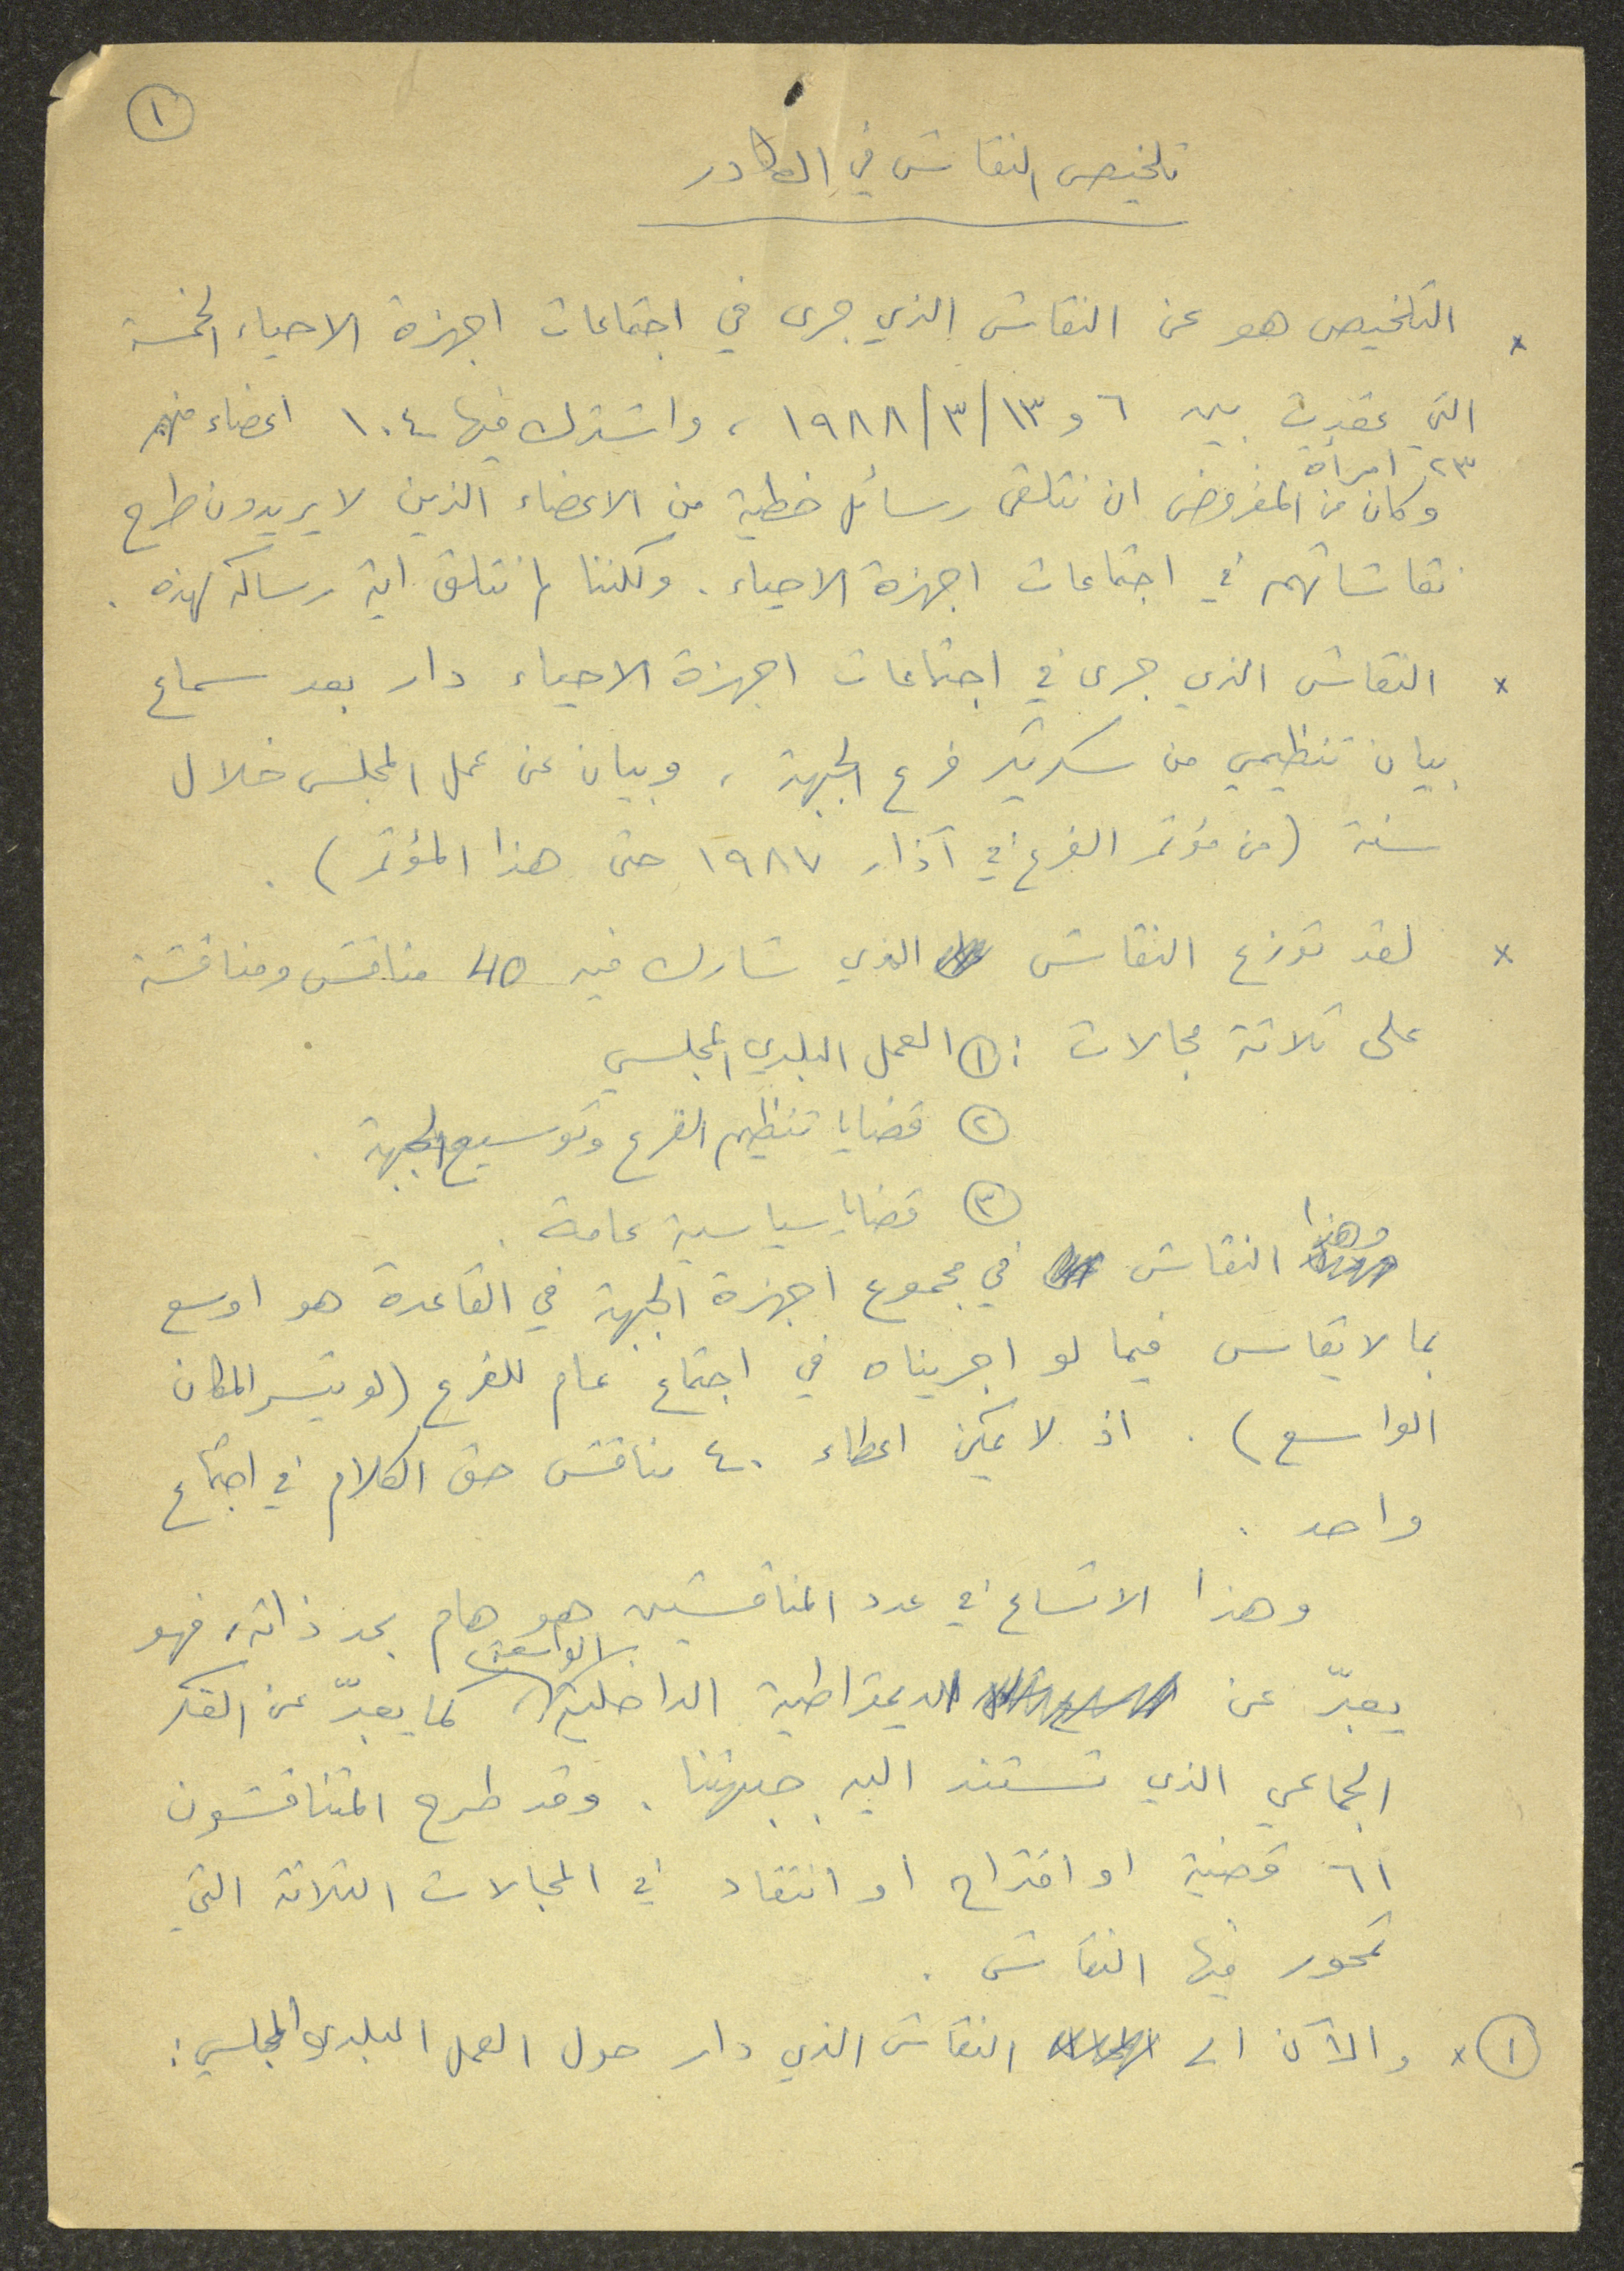 ١
تلخيص النقاش في الكادر
x التلخيص هو عن النقاش الذي جرى في اجتماعات اجهزة الاحياء الخمسة
التي عقدت بين ٦ و ١٣/٣/١٩٨٨ ، واشترك فيها ١٠٤ اعضاء منهم
٢٣ امرأة
وكان من المفروض ان نتلقى رسائل خطية من الاعضاء الذين لا يريدون طرح
نقاشاتهم في اجتماعات اجهزة الاحياء . ولكننا لم نتلق اية رسالة كهذه .
x النقاش الذي جرى في اجتماعات اجهزة الاحياء دار بعد سماع
بيان تنظيمي من سكرتير فرع الجبهة ، وبيان عن عمل المجلس خلال
سنة (من مؤتمر الفرع في آذار ١٩٨٧ حتى هذا المؤتمر) .
x لقد توزع النقاش الذي شارك فيه 40 مناقش ومناقشة
على ثلاثة مجالات : ① العمل البلدي المجلسي
② قضايا تنظيم الفرع وتوسيع الجبهة .
③ قضايا سياسية عامة .
وهذا النقاش في مجموع اجهزة الجبهة في القاعدة هو اوسع
بما لا يقاس فيما لو اجريناه في اجتماع عام للفرع (لو تيسر المكان
الواسع) . اذ لا يمكن اعطاء ٤٠ مناقش حق الكلام في اجتماع
واحد .
وهذا الاتساع في عدد المناقشين هو هام بحد ذاته، فهو
يعبّر عن الديمقراطية الداخلية الواسعة، كما يعبّر عن الفكر
الجماعي الذي تستند اليه جبهتنا . وقد طرح المتناقشون
٦١ قضية او اقتراح او انتقاد في المجالات الثلاثة التي
تمحور فيها النقاش .
① x والآن الى النقاش الذي دار حول العمل البلدي المجلسي :